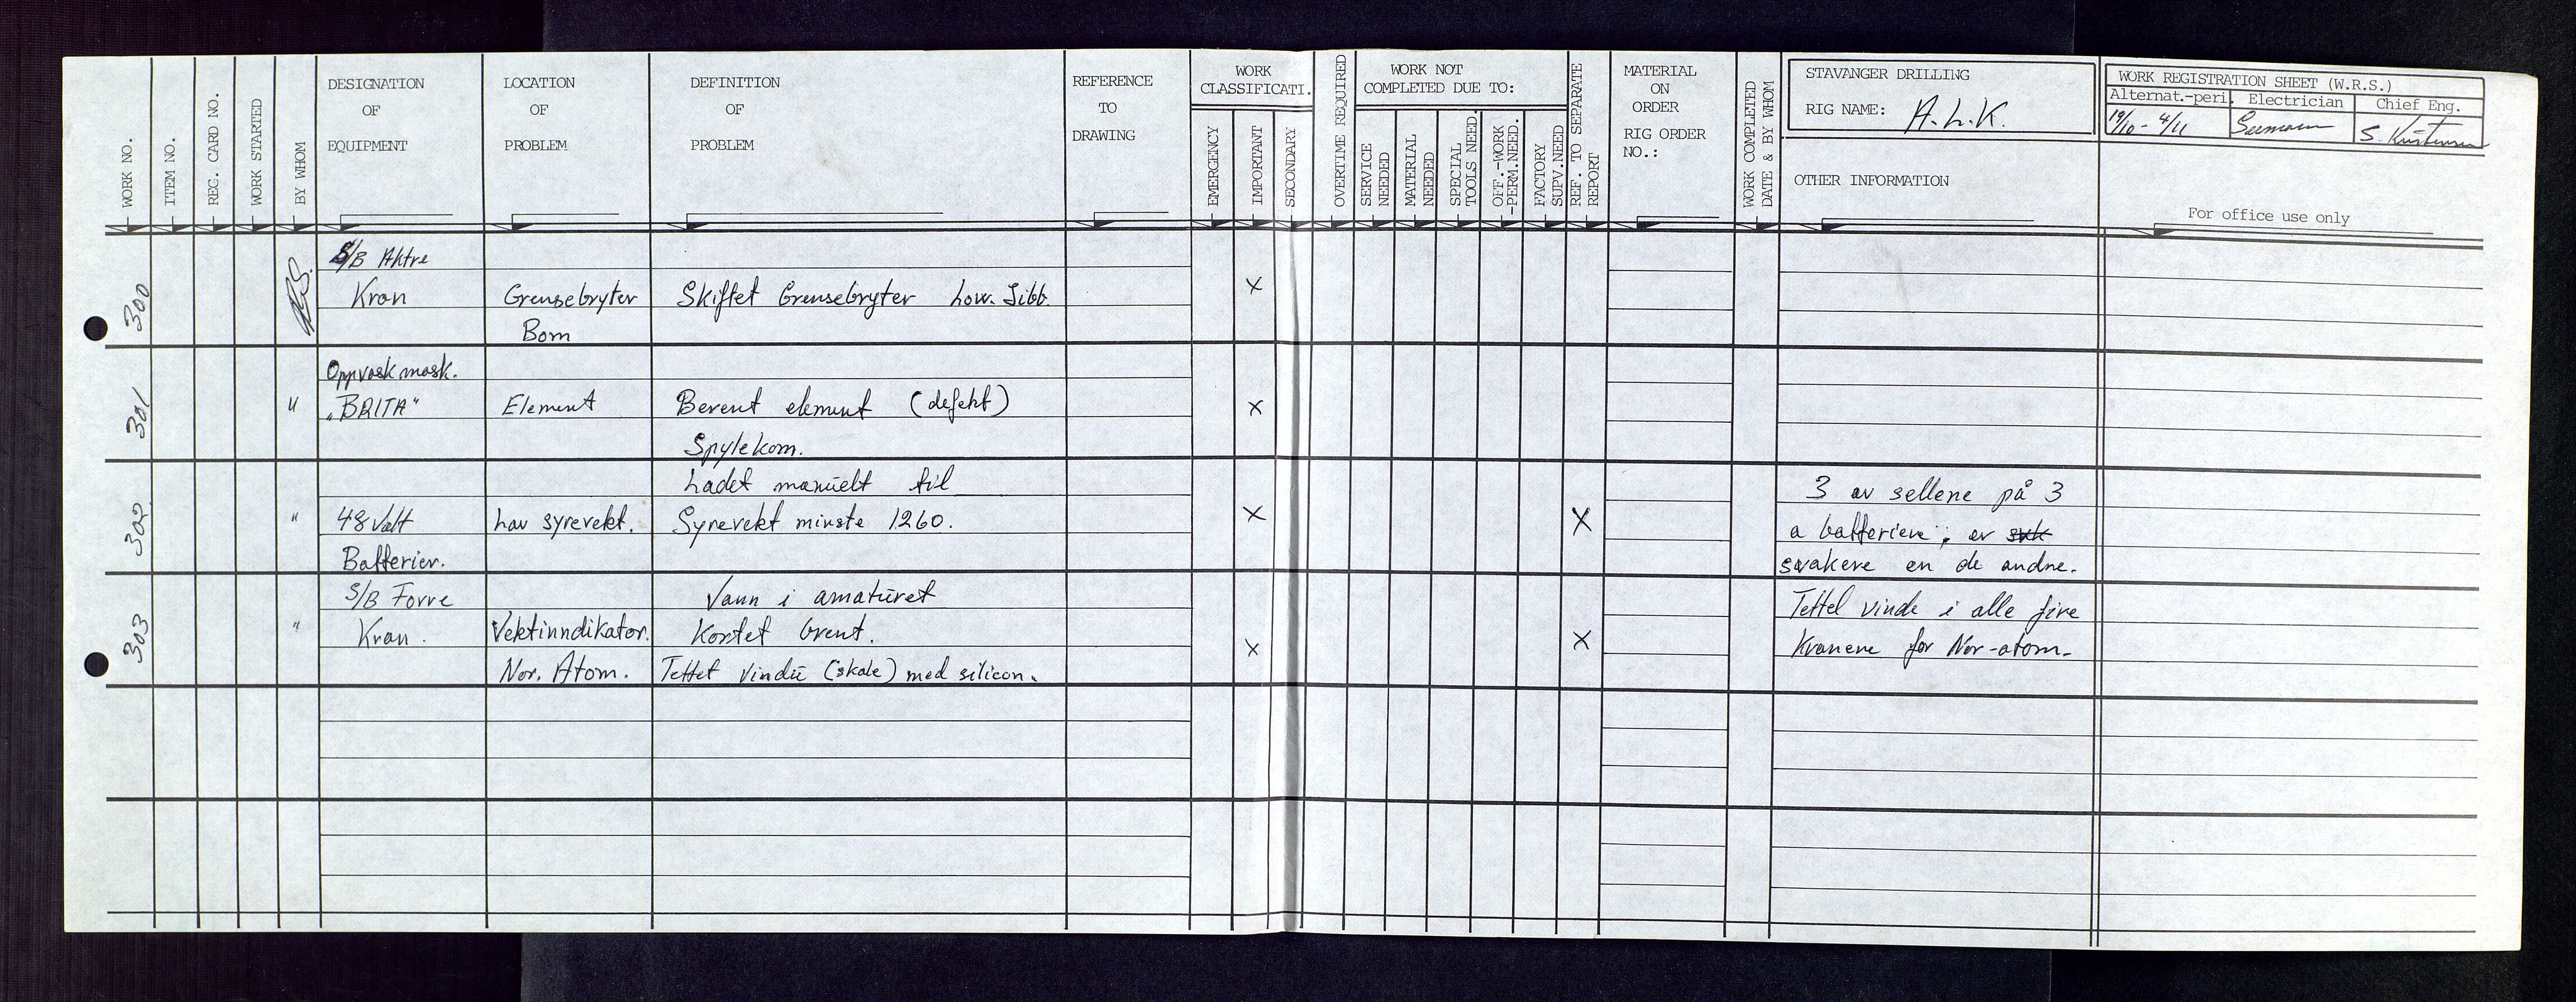 WORK NO.
ITEM NO.
REG. CARD NO.
WORK STARTED
BY WHOM
DESIGNATION
OF
EQUIPMENT
LOCATION
OF
PROBLEM
DEFINITION
OF
PROBLEM
REFERENCE
TO
DRAWING
WORK
CLASSIFICATI.
EMERGENCY
IMPORTANT
SECONDARY
OVERTIME REQUIRED
WORK NOT
COMPLETED DUE TO:
SERVICE
NEEDED
MATERIAL
NEEDED
SPECIAL
TOOLS NEED.
OFF.-WORK
-PERM.NEED.
FACTORY
SUPV.NEED
REF. TO SEPARATE
REPORT
MATERIAL
ON
ORDER
RIG ORDER
NO.:
WORK COMPLETED
DATE & BY WHOM
STAVANGER DRILLING
RIG NAME: A.L.K.
OTHER INFORMATION
WORK REGISTRATION SHEET (W.R.S.)
Alternat.-peri. Electrician Chief Eng.
19/10 - 4/11 S. Kristensen
For office use only
300
S/B Aktre
Kran
Grensebryter
Bom
Skiftet Grensebryter Low. Jibb.
X
301
"
Oppvask mask.
"BRITA"
Element
Berent element (defekt)
Spylekom.
X
302
"
48 Valt
Batterier.
Lav syrevekt.
Ladet manuelt til
Syrevekt minste 1260.
X
X
3 av sellene på 3
a batteriene, er svk
svakere en de andre.
303
"
S/B Forre
Kran.
Vektinndikator.
Nor. Atom.
Vann i amaturet
Kortet brent.
Tettet vindu (skale) med silicon.
X
X
Tettel vinde i alle fire
Kranene for Nor-atom.